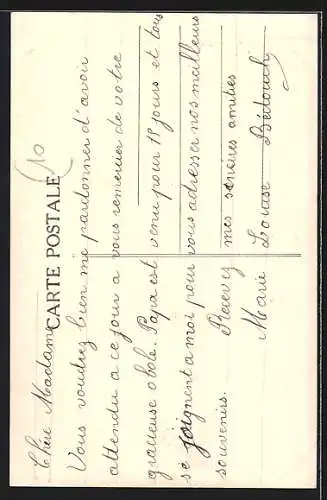 CARTE POSTALE
10
Chère Madame
Vous voudrez bien me pardonner d'avoir
attendu a ce jour a vous remercier de votre
gracieuse obole. Papa est venu pour 18 jours et tous
se joignent a moi pour vous adresser nos meilleurs
souvenirs. Recevez mes sincères amities
Marie Louise